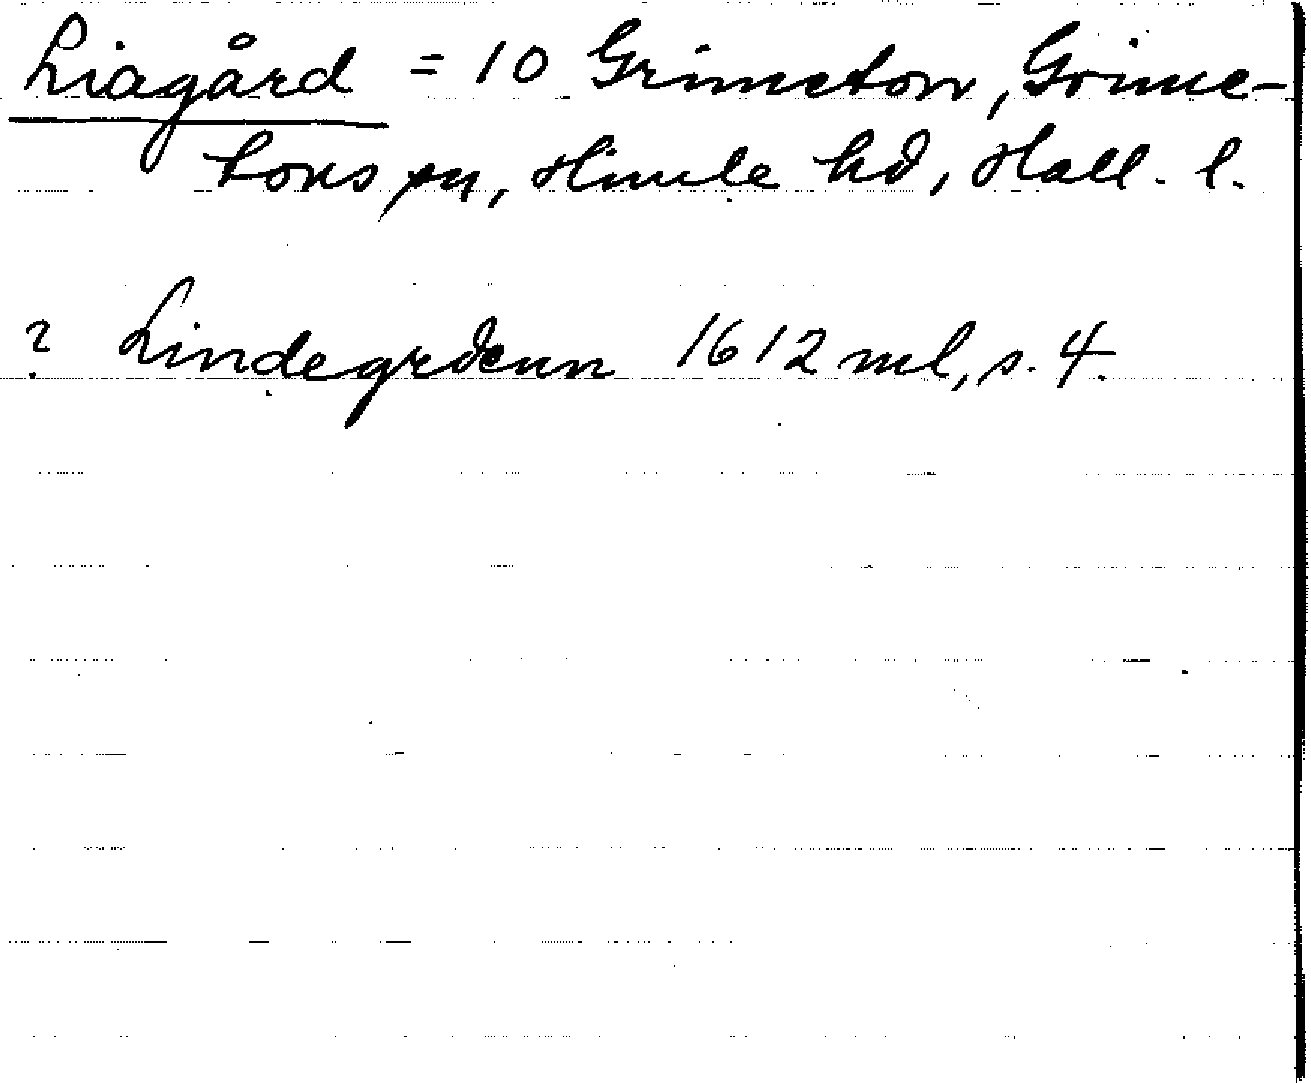 Liagård = 10 Grimeton, Grime-
tons sn, Himle hd, Hall. l.
? Lindegrdenn 1612 ml, s. 4.